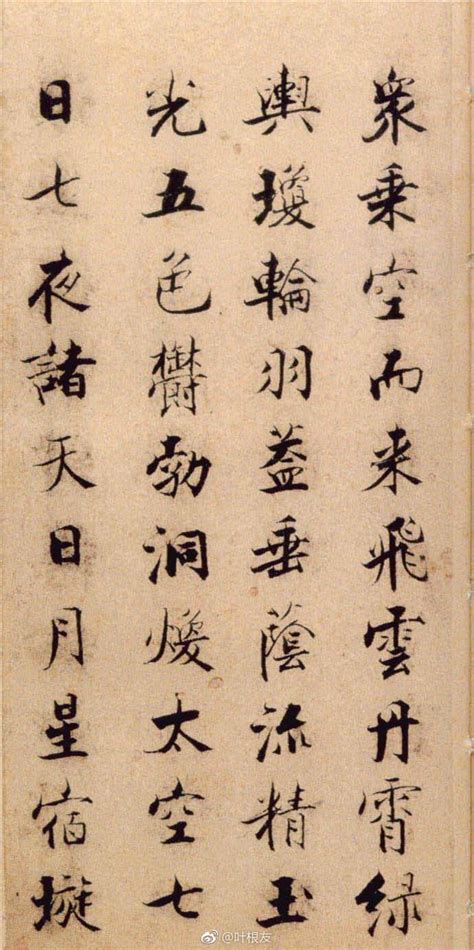 衆乗空而来飛雲丹霄緑
輿瓊輪羽蓋垂蔭流精玉
光五色欝勃洞煥太空七
日七夜諸天日月星宿璇
@叶根友